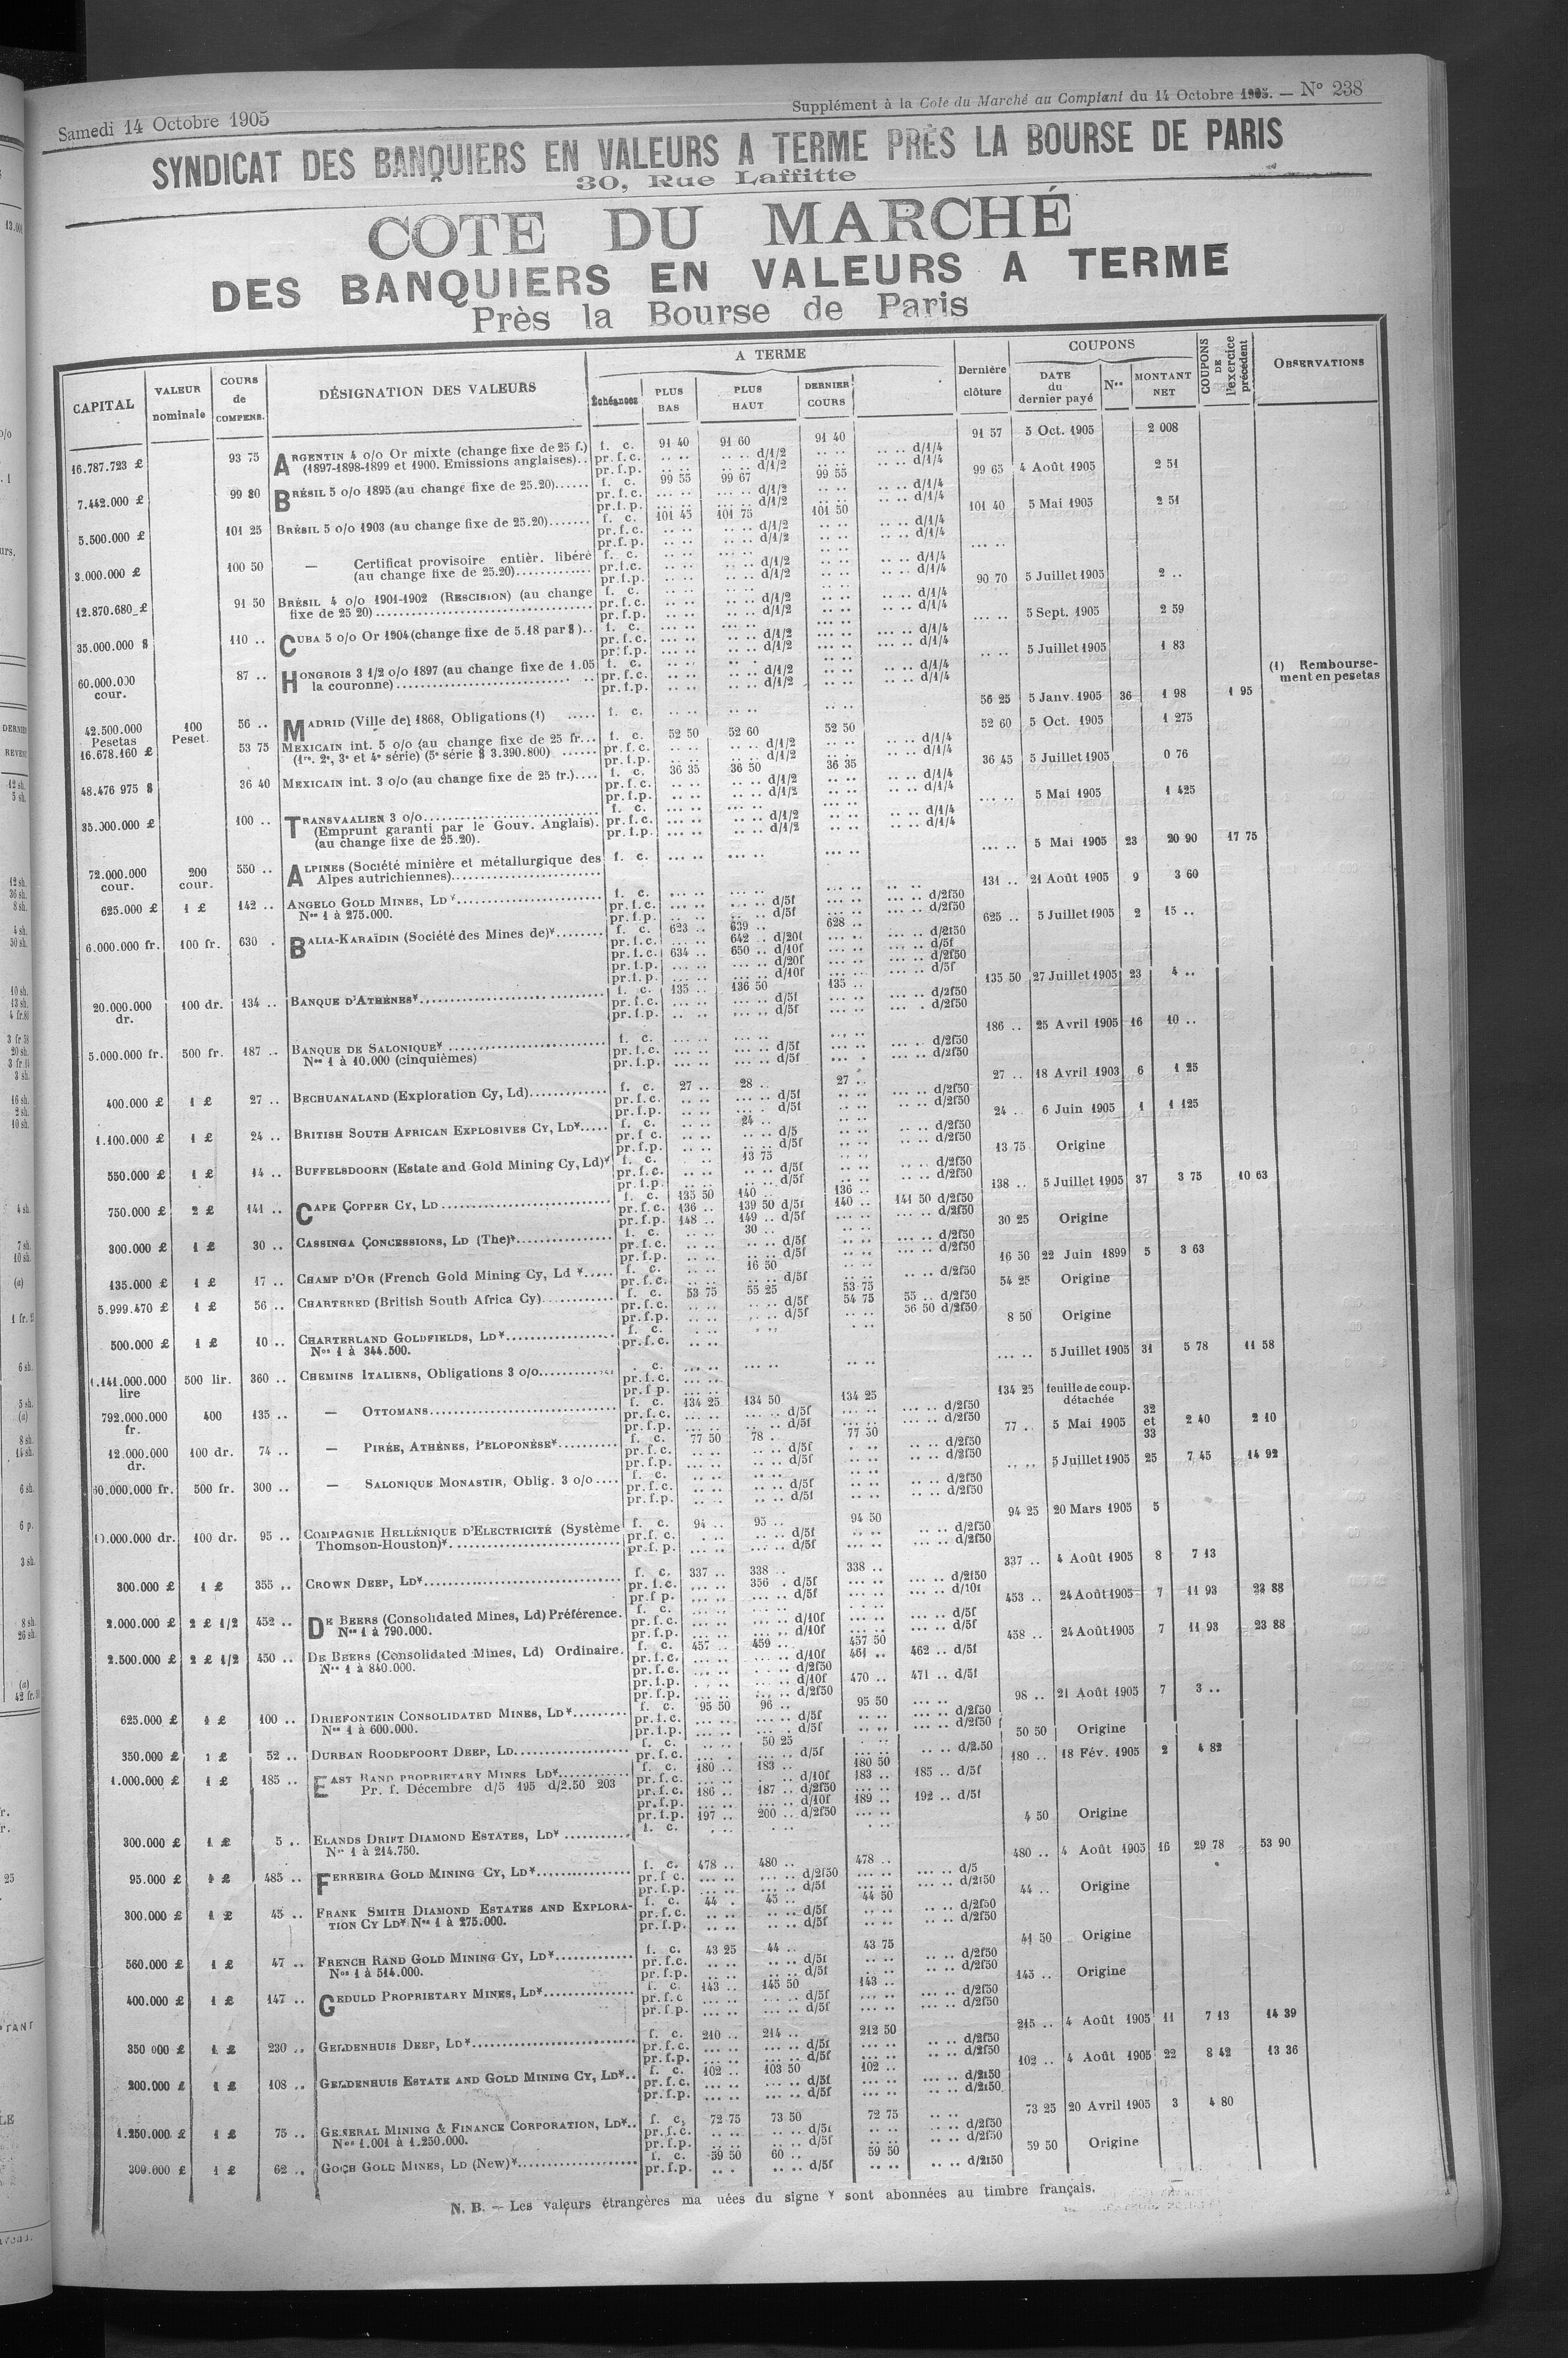 Samedi 14 Octobre 1905
Supplément à la Cote du Marché au Comptant du 14 Octobre 1905. — N° 238
SYNDICAT DES BANQUIERS EN VALEURS A TERME PRÈS LA BOURSE DE PARIS
30, Rue Laffitte
COTE DU MARCHÉ
DES BANQUIERS EN VALEURS A TERME
Près la Bourse de Paris
CAPITAL | VALEUR nominale | COURS de COMPENS. | DÉSIGNATION DES VALEURS | A TERME | Échéances | PLUS BAS | PLUS HAUT | DERNIER COURS | Dernière clôture | COUPONS | DATE du dernier payé | Nos | MONTANT NET | COUPONS DE l'exercice précédent | OBSERVATIONS
16.787.723 £ 93 75 ARGENTIN 4 o/o Or mixte (change fixe de 25 f.) f. c. 91 40 91 60 91 40 91 57 3 Oct. 1905 2 008
(1897-1898-1899 et 1900. Emissions anglaises).. pr.f.c. d/1/2 d/1/4
pr.f.p. d/1/2 d/1/4
7.442.000 £ 99 80 BRÉSIL 5 o/o 1895 (au change fixe de 25.20)...... f. c. 99 55 99 67 99 55 99 65 4 Août 1905 2 51
pr.f.c. d/1/2 d/1/4
pr.f.p. d/1/2 d/1/4
5.500.000 £ 101 25 BRÉSIL 5 o/o 1903 (au change fixe de 25.20)....... f. c. 101 45 101 75 101 50 101 40 5 Mai 1905 2 51
pr.f.c. d/1/2 d/1/4
pr.f.p. d/1/2 d/1/4
3.000.000 £ 100 50 — Certificat provisoire entièr. libéré f. c.
(au change fixe de 25.20)............. pr.f.c. d/1/2 d/1/4
pr.f.p. d/1/2 d/1/4
12.870.680 £ 91 50 BRÉSIL 4 o/o 1901-1902 (RESCISION) (au change f. c. 90 70 5 Juillet 1905 2 ..
fixe de 25 20) pr.f.c. d/1/2 d/1/4
pr.f.p. d/1/2 d/1/4
35.000.000 $ 110 .. CUBA 5 o/o Or 1904 (change fixe de 5.18 par $).. f. c. 5 Sept. 1905 2 59
pr.f.c. d/1/2 d/1/4
pr.f.p. d/1/2 d/1/4
60.000.000 cour. 87 .. HONGROIS 3 1/2 o/o 1897 (au change fixe de 1.05 f. c. 5 Juillet 1905 1 83
la couronne) pr.f.c. d/1/2 d/1/4
pr.f.p. d/1/2 d/1/4
(1) Remboursement en pesetas
42.500.000 Pesetas 100 Peset. 56 .. MADRID (Ville de) 1868, Obligations (1) f. c. 56 25 5 Janv. 1905 36 1 98 1 95
16.678.160 £ 53 75 MEXICAIN int. 5 o/o (au change fixe de 25 fr... f. c. 52 50 52 60 52 50 52 60 5 Oct. 1905 1 275
(1re. 2e, 3e et 4e série) (5e série $ 3.390.800) ...... pr.f.c. d/1/2 d/1/4
pr.f.p. d/1/2 d/1/4
48.476 975 $ 36 40 MEXICAIN int. 3 o/o (au change fixe de 25 fr.).... f. c. 36 35 36 50 36 35 36 45 5 Juillet 1905 0 76
pr.f.c. d/1/2 d/1/4
pr.f.p. d/1/2 d/1/4
35.000.000 £ 100 .. TRANSVAALIEN 3 o/o f. c. 5 Mai 1905 1 425
(Emprunt garanti par le Gouv. Anglais). pr.f.c. d/1/2 d/1/4
(au change fixe de 25.20). pr.f.p. d/1/2 d/1/4
72.000.000 cour. 200 cour. 550 .. ALPINES (Société minière et métallurgique des f. c. 5 Mai 1905 23 20 90 17 75
Alpes autrichiennes)
625.000 £ 1 £ 142 .. ANGELO GOLD MINES, LD* f. c. 131 .. 21 Août 1905 9 3 60
Nos 1 à 275.000. pr.f.c. d/5f d/2f50
pr.f.p. d/5f d/2f50
6.000.000 fr. 100 fr. 630 . BALIA-KARAÏDIN (Société des Mines de)* f. c. 623 .. 639 .. 628 .. 625 .. 5 Juillet 1905 2 15 ..
pr.f.c. 642 .. d/20f d/2f50
pr.f.c. 634 .. 650 .. d/10f d/5f
pr.f.p. d/20f d/2f50
pr.f.p. d/10f d/5f
20.000.000 dr. 100 dr. 134 .. BANQUE D'ATHÈNES* f. c. 135 .. 136 50 135 .. 135 50 27 Juillet 1905 23 4 ..
pr.f.c. d/5f d/2f50
pr.f.p. d/5f d/2f50
5.000.000 fr. 500 fr. 187 .. BANQUE DE SALONIQUE* f. c. 186 .. 25 Avril 1905 16 10 ..
Nos 1 à 10.000 (cinquièmes) pr.f.c. d/5f d/2f50
pr.f.p. d/5f d/2f50
400.000 £ 1 £ 27 .. BECHUANALAND (Exploration Cy, Ld) f. c. 27 .. 28 .. 27 .. 27 .. 18 Avril 1903 6 1 25
pr.f.c. d/5f d/2f50
pr.f.p. d/5f d/2f50
1.100.000 £ 1 £ 24 .. BRITISH SOUTH AFRICAN EXPLOSIVES CY, LD* f. c. 24 .. 24 .. 6 Juin 1905 1 1 125
pr.f c. d/5 d/2f50
pr.f.p. d/5f d/2f50
550.000 £ 1 £ 14 .. BUFFELSDOORN (Estate and Gold Mining Cy, Ld)* f. c. 13 75 13 75 Origine
pr.f.c. d/5f d/2f50
pr.f.p. d/5f d/2f50
750.000 £ 2 £ 141 .. CAPE COPPER CY, LD f. c. 135 50 140 .. 136 .. 138 .. 5 Juillet 1905 37 3 75 10 63
pr.f.c. 136 .. 139 50 d/5f 140 .. 141 50 d/2f50
pr.f.p. 148 .. 149 .. d/5f d/2f50
300.000 £ 1 £ 30 .. CASSINGA CONCESSIONS, LD (The)* f. c. 30 .. 30 25 Origine
pr.f.c. d/5f d/2f50
pr.f.p. d/5f d/2f50
135.000 £ 1 £ 17 .. CHAMP D'OR (French Gold Mining Cy, Ld * f. c. 16 50 16 50 22 Juin 1899 5 3 63
pr.f.c. d/5f d/2f50
5.999.470 £ 1 £ 56 .. CHARTERED (British South Africa Cy) f. c. 53 75 55 25 53 75 54 25 Origine
pr.f.c. d/5f 54 75 55 .. d/2f50
pr.f.p. d/5f 56 50 d/2f50
500.000 £ 1 £ 10 .. CHARTERLAND GOLDFIELDS, LD* f. c. 8 50 Origine
Nos 1 à 344.500. pr.f.c.
1.141.000.000 lire 500 lir. 360 .. CHEMINS ITALIENS, Obligations 3 o/o . c. 5 Juillet 1905 31 5 78 11 58
pr.f.c.
pr.f p.
792.000.000 fr. 400 135 .. — OTTOMANS f. c. 134 25 134 50 134 25 134 25 feuille de coup. détachée
pr.f.c. d/5f d/2f50
pr.f.p. d/5f d/2f50
12.000.000 dr. 100 dr. 74 .. — PIRÉE, ATHÈNES, PELOPONÈSE* f. c. 77 50 78 .. 77 50 77 .. 5 Mai 1905 32 et 33 2 40 2 10
pr.f.c. d/5f d/2f50
pr.f.p. d/5f d/2f50
60.000.000 fr. 500 fr. 300 .. — SALONIQUE MONASTIR, Oblig. 3 o/o f. c. 5 Juillet 1905 25 7 45 14 92
pr.f.c. d/5f d/2f50
pr.f.p. d/5f d/2f50
100 dr. 95 .. COMPAGNIE HELLÉNIQUE D'ELECTRICITÉ (Système f. c. 94 .. 95 .. 94 50 94 25 20 Mars 1905 5
Thomson-Houston)* pr.f.c. d/5f d/2f50
pr.f.p. d/5f d/2f50
300.000 £ 1 £ 355 .. CROWN DEEP, LD* f. c. 337 .. 338 .. 338 .. 337 .. 4 Août 1905 8 7 13
pr.f.c. 356 . d/5f d/2f50
pr.f p. d/5f d/10f
2.000.000 £ 2 £ 1/2 452 .. DE BEERS (Consolidated Mines, Ld) Préférence. f. c. 453 .. 24 Août 1905 7 11 93 23 88
Nos 1 à 790.000. pr.f.c. d/10f d/5f
pr.f.p. d/10f d/5f
2.500.000 £ 2 £ 1/2 450 .. DE BEERS (Consolidated Mines, Ld) Ordinaire. f. c. 457 .. 459 .. 457 50 458 .. 24 Août 1905 7 11 93 23 88
Nos 1 à 840.000. pr.f.c. d/10f 461 .. 462 .. d/5f
pr.f.c. d/2f50
pr.f.p. d/10f 470 .. 471 .. d/5f
pr.f.p. d/2f50
625.000 £ 1 £ 100 .. DRIEFONTEIN CONSOLIDATED MINES, LD* f. c. 95 50 96 .. 95 50 98 .. 21 Août 1905 7 3 ..
Nos 1 à 600.000. pr.f.c. d/5f d/2f50
pr.f.p. d/5f d/2f50
350.000 £ 1 £ 52 .. DURBAN ROODEPOORT DEEP, LD f. c. 50 25 50 50 Origine
pr.f.c. d/5f d/2.50
1.000.000 £ 1 £ 185 .. EAST RAND PROPRIETARY MINES LD* f. c. 180 .. 183 .. 180 50 180 .. 18 Fév. 1905 2 4 82
Pr. f. Décembre d/5 195 d/2.50 203 pr.f.c. d/10f 183 .. 185 .. d/5f
pr.f.c. 186 .. 187 .. d/2f50
pr.f.p. d/10f 189 .. 192 .. d/5f
pr.f.p. 197 .. 200 .. d/2f50
300.000 £ 1 £ 5 .. ELANDS DRIFT DIAMOND ESTATES, LD* f. c. 4 50 Origine
Nos 1 à 214.750.
95.000 £ 1 £ 485 .. FERREIRA GOLD MINING CY, LD* f. c. 478 .. 480 .. 478 .. 480 .. 4 Août 1905 16 29 78 53 90
pr.f c. d/2f50 d/5
pr.f.p. d/5f d/2f50
300.000 £ 1 £ 45 .. FRANK SMITH DIAMOND ESTATES AND EXPLORA- f. c. 44 . 45 .. 44 50 44 .. Origine
TION CY LD* Nos 1 à 275.000. pr.f.c. d/5f d/2f50
pr.f.p. d/5f d/2f50
560.000 £ 1 £ 47 .. FRENCH RAND GOLD MINING CY, LD* f. c. 43 25 44 .. 43 75 41 50 Origine
Nos 1 à 514.000. pr.f.c. d/5f d/2f50
pr.f.p. d/5f d/2f50
400.000 £ 1 £ 147 .. GEDULD PROPRIETARY MINES, LD* f. c. 143 .. 145 50 143 .. 145 .. Origine
pr.f.c d/5f d/2f50
pr.f.p. d/5f d/2f50
350 000 £ 1 £ 230 .. GELDENHUIS DEEP, LD* f. c. 210 .. 214 .. 212 50 215 .. 4 Août 1905 11 7 13 14 39
pr.f.c. d/5f d/2f50
pr.f.p. d/5f d/2f50
200.000 £ 1 £ 108 .. GELDENHUIS ESTATE AND GOLD MINING CY, LD* f. c. 102 .. 103 50 102 .. 102 .. 4 Août 1905 22 8 42 13 36
pr.f.c. d/5f d/2f50
pr.f.p. d/5f d/2f50
1.250.000 £ 1 £ 75 .. GENERAL MINING & FINANCE CORPORATION, LD* f. c. 72 75 73 50 72 75 73 25 20 Avril 1905 3 4 80
Nos 1.001 à 1.250.000. pr.f.c. d/5f d/2f50
pr.f.p. d/5f d/2f50
300.000 £ 1 £ 62 .. GOCH GOLD MINES, LD (New)* f. c. 59 50 60 .. 59 50 59 50 Origine
pr.f.p. d/5f d/2f50
N. B. — Les valeurs étrangères ma uées du signe * sont abonnées au timbre français.